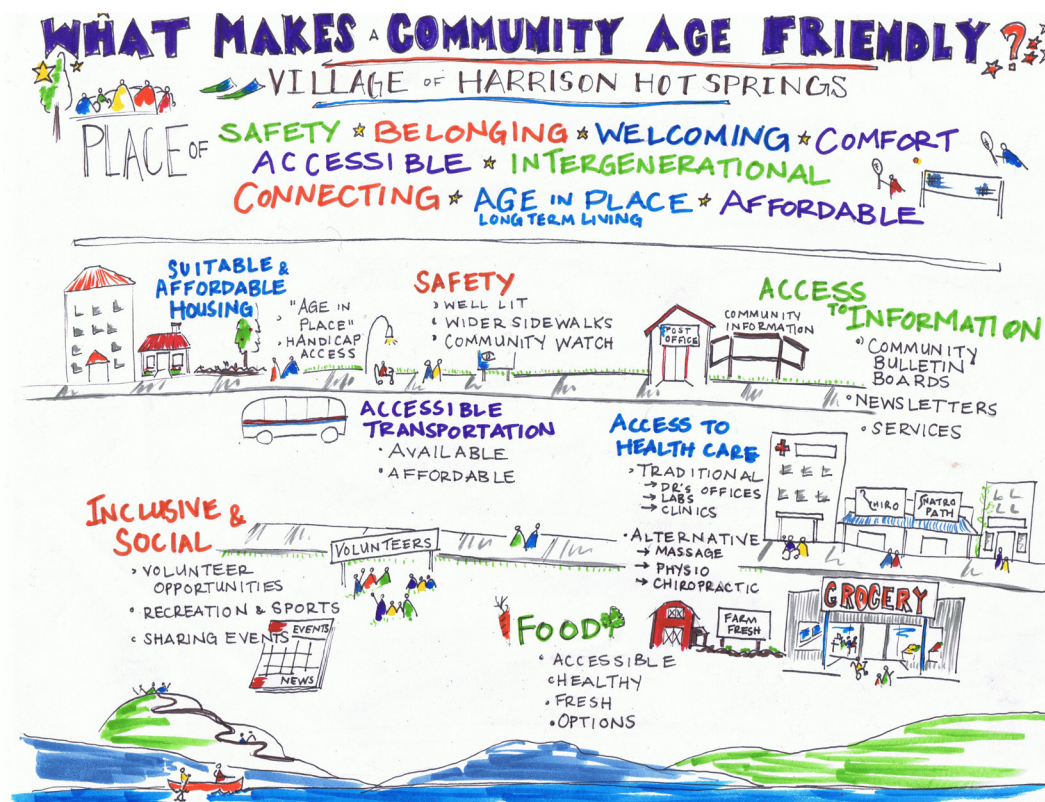 WHAT MAKES A COMMUNITY AGE FRIENDLY?
VILLAGE OF HARRISON HOT SPRINGS
PLACE OF
SAFETY ★ BELONGING ★ WELCOMING ★ COMFORT
ACCESSIBLE ★ INTERGENERATIONAL
CONNECTING ★ AGE IN PLACE ★ AFFORDABLE
LONG TERM LIVING
SUITABLE &
AFFORDABLE
HOUSING
"AGE IN
PLACE"
HANDICAP
ACCESS
SAFETY
WELL LIT
WIDER SIDEWALKS
COMMUNITY WATCH
POST
OFFICE
COMMUNITY
INFORMATION
ACCESS
TO INFORMATION
• COMMUNITY
BULLETIN
BOARDS
• NEWSLETTERS
• SERVICES
ACCESSIBLE
TRANSPORTATION
• AVAILABLE
• AFFORDABLE
ACCESS TO
HEALTH CARE
TRADITIONAL
→ DR'S OFFICES
→ LABS
→ CLINICS
• ALTERNATIVE
→ MASSAGE
→ PHYSIO
→ CHIROPRACTIC
CHIRO
NATRO
PATH
INCLUSIVE &
SOCIAL
VOLUNTEER
OPPORTUNITIES
• RECREATION & SPORTS
SHARING EVENTS
VOLUNTEERS
EVENTS
NEWS
FOOD
• ACCESSIBLE
HEALTHY
• FRESH
• OPTIONS
FARM
FRESH
GROCERY